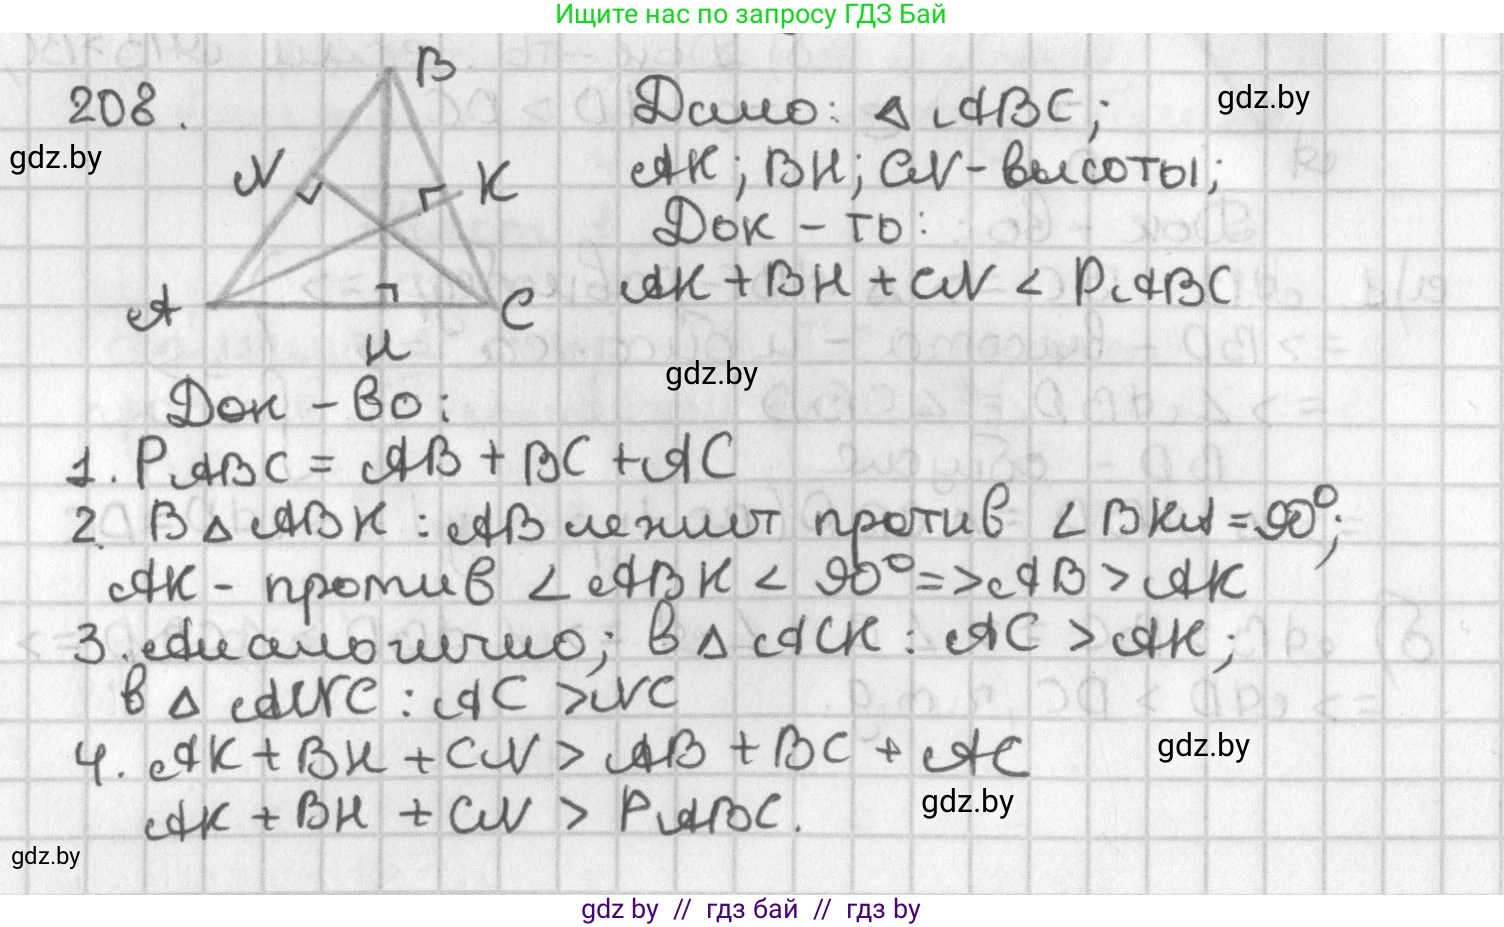 Ищите нас по запросу ГДЗ Бай
208.
B
N
K
A
C
H
Дано: △ ABC;
AK; BH; CN - высоты;
Док - ть:
AK + BH + CN < PABC
gdz.by
gdz.by
gdz.by
Док - во:
1. PABC = AB + BC + AC
2. В △ ABK : AB лежит против ∠ BKA = 90°;
AK - против ∠ ABK < 90° => AB > AK
3. Аналогично; в △ ACK : AC > AK;
в △ ANC : AC > NC
4. AK + BH + CN > AB + BC + AC
AK + BH + CN > PABC.
gdz.by
gdz.by
gdz.by
gdz by // гдз бай // гдз by